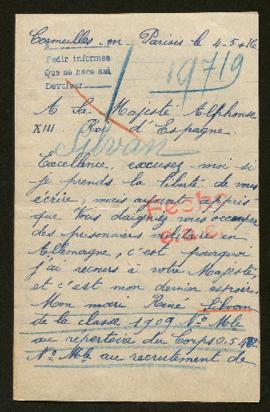 Cormeilles en Parisis le 4-5-16
Pedir informes
Que se hace así
Devolver
19719
A Sa Majesté Alphonse
XIII Roi d'Espagne
Silvan
Excellence, excusez moi si
je prends la liberté de vous
écrire, mais ayant appris
que Vous daignez vous occuper
des prisonniers militaires en
Allemagne, c'est pourquoi
j'ai recours à votre Majesté
et c'est mon dernier espoir.
Mon mari René Silvan
de la classe 1909 No Mle
au répertoire du Corps
No Mle au recrutement de